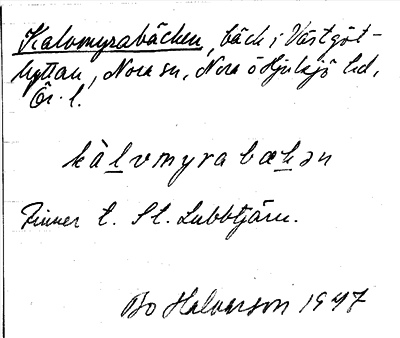 Kalvmyrabäcken, bäck i Västgöt-
hyttan, Nora sn, Nora o Hjulsjö hd,
Ör. l.
kàlvmyrabækən
Rinner t. St. Lubbtjärn.
Bo Halvarson 1947